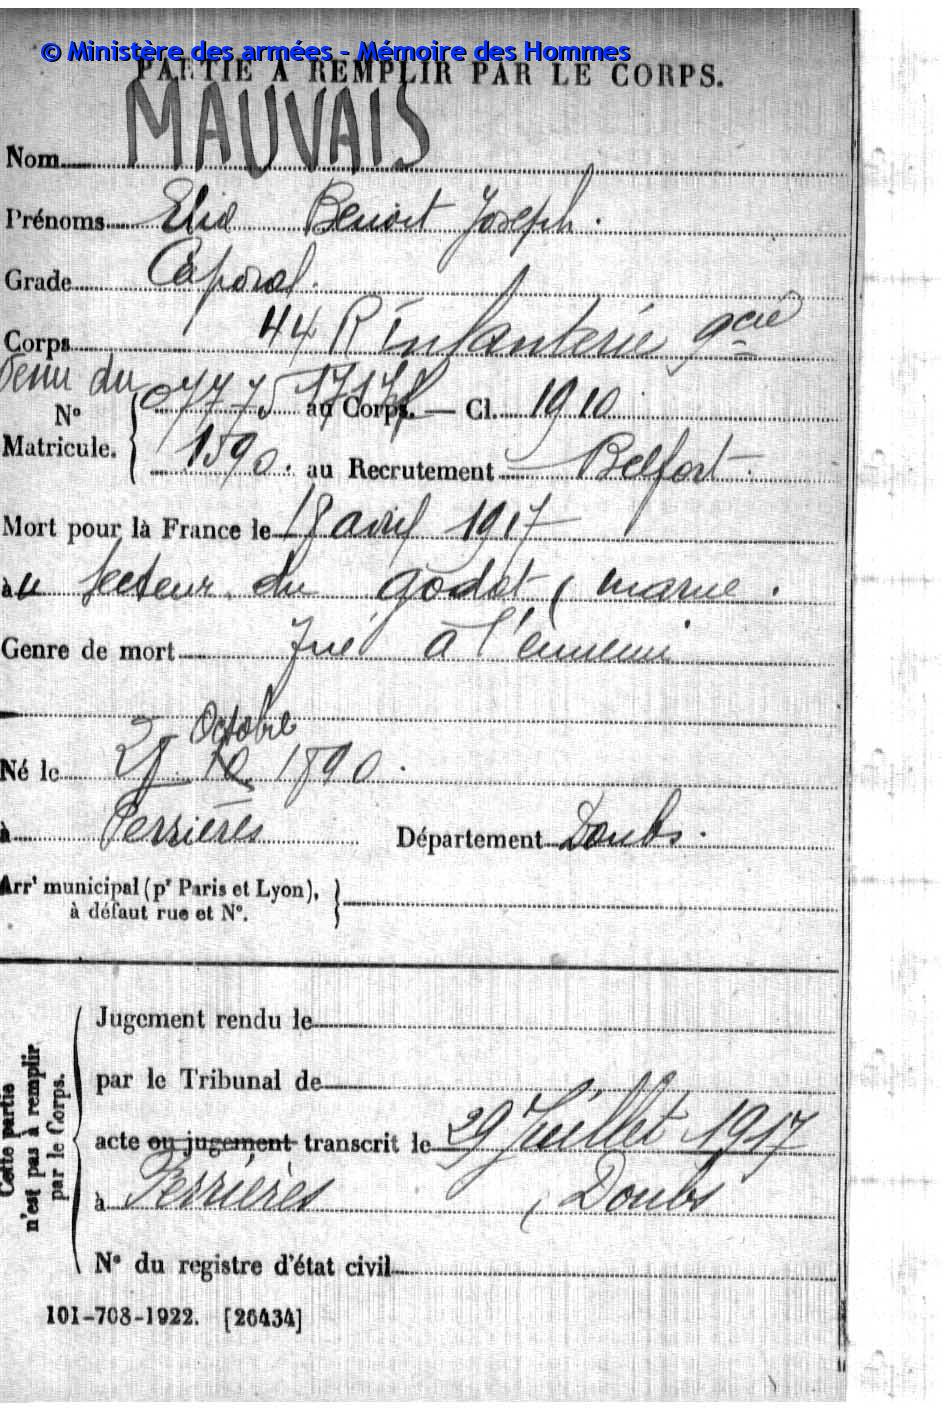 © Ministère des armées - Mémoire des Hommes
PARTIE À REMPLIR PAR LE CORPS.
Nom MAUVAIS
Prénoms Elie Benoit Joseph.
Grade Caporal.
Corps 44 R Infanterie 9 cie
Venu du
N° 07775 au Corps. — Cl. 1910
Matricule. 1590. au Recrutement Belfort.
Mort pour là France le 18 avril 1917
au secteur du godat ( marne.
Genre de mort Tué à l'ennemi
Octobre
Né le 28 10 1890.
à Ferrières Département Doubs.
Arrt municipal (pr Paris et Lyon),
à défaut rue et N°.
Cette partie
n'est pas à remplir
par le Corps.
Jugement rendu le
par le Tribunal de
acte ou jugement transcrit le 29 Juillet 1917
à Ferrières ( Doubs
N° du registre d'état civil
101-708-1922. [26434]